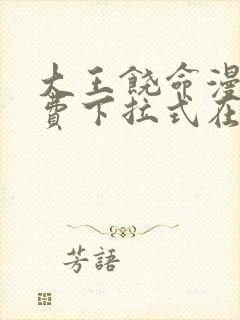 大王饶命漫
费下拉式在
芳語